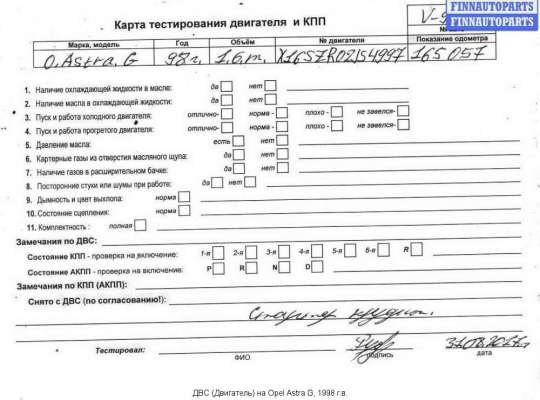 FINNAUTOPARTS
FINNAUTOPARTS
Карта тестирования двигателя и КПП
V-9
Марка, модель Год Объём № двигателя Показание одометра
O. Astra. G 98г. 1,6 т. X16SZR02JS4997 165 057
1. Наличие охлаждающей жидкости в масле: да нет
2. Наличие масла в охлаждающей жидкости: да нет
3. Пуск и работа холодного двигателя: отлично- норма - плохо - не завелся-
4. Пуск и работа прогретого двигателя: отлично- норма - плохо - не завелся-
5. Давление масла: есть нет
6. Картерные газы из отверстия масляного щупа: да нет
7. Наличие газов в расширительном бачке: да нет
8. Посторонние стуки или шумы при работе: да нет
9. Дымность и цвет выхлопа: норма
10. Состояние сцепления: норма
11. Комплектность : полная
Замечания по ДВС:
Состояние КПП - проверка на включение: 1-я 2-я 3-я 4-я 5-я 6-я R
Состояние АКПП - проверка на включение: P R N D
Замечания по КПП (АКПП):
Снято с ДВС (по согласованию!):
Стартер
Тестировал: ФИО подпись дата
ДВС (Двигатель) на Opel Astra G, 1998 г.в.